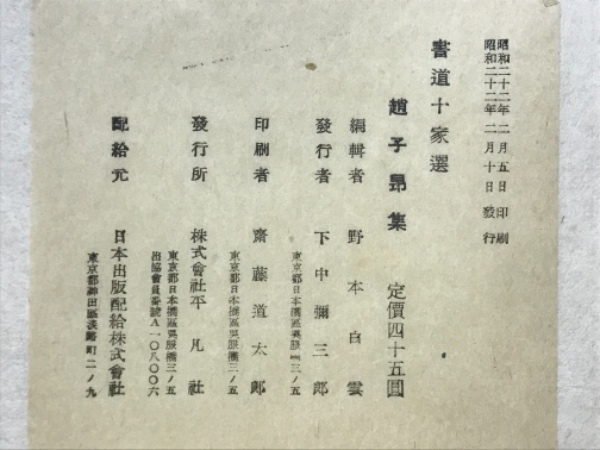 昭和二十二年二月五日印刷
昭和二十二年二月十日發行
書道十家選
趙子昂集 定價四十五圓
編輯者 野本白雲
發行者 下中彌三郎
東京都日本橋區吳服橋三ノ五
印刷者 齋藤道太郎
東京都日本橋區吳服橋三ノ五
發行所 株式會社平凡社
東京都日本橋區吳服橋三ノ五
出協會員番號A一〇八〇〇六
配給元 日本出版配給株式會社
東京都神田區淡路町二ノ九